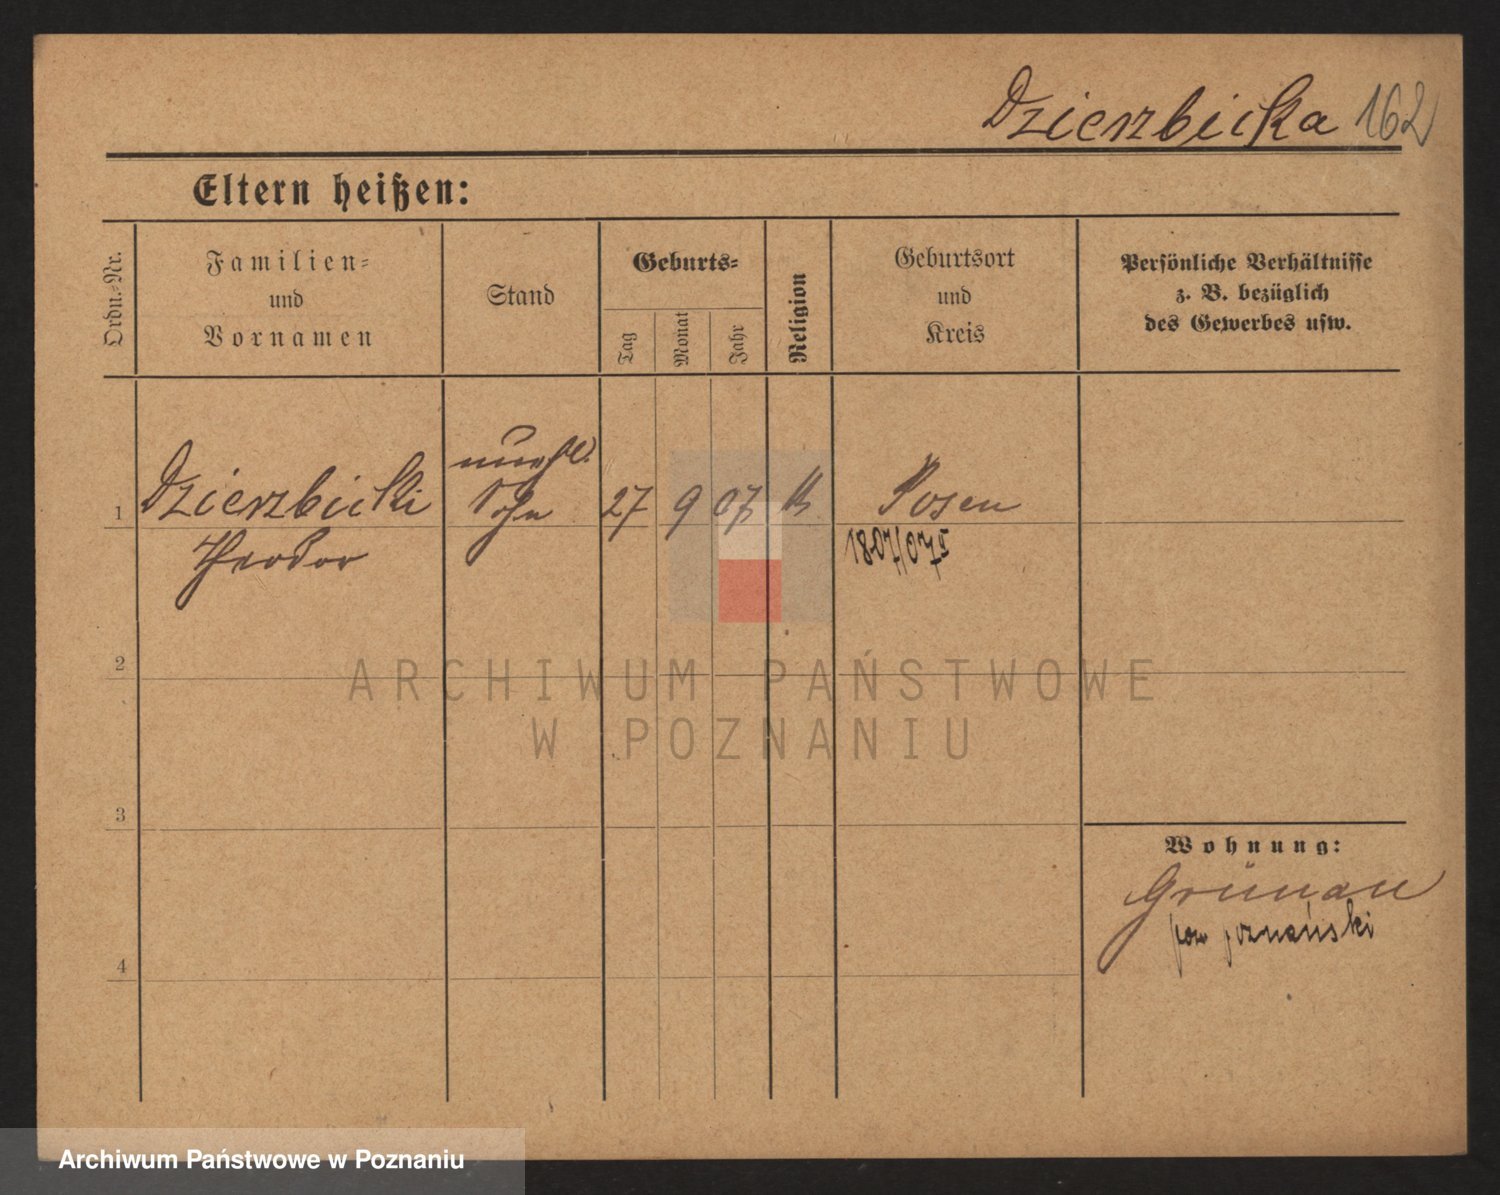 Dzierzbicka 162
Eltern heißen:
Ordn.-Nr.
Familien-
und
Vornamen
Stand
Geburts-
Tag
Monat
Jahr
Religion
Geburtsort
und
Kreis
Persönliche Verhältnisse
z. B. bezüglich
des Gewerbes usw.
unehel.
1 Dzierzbicki Sohn 27 9 07 k Posen
Theodor 1807/07
2
ARCHIWUM PAŃSTWOWE
W POZNANIU
3
Wohnung:
Grünau
pow poznański
4
Archiwum Państwowe w Poznaniu